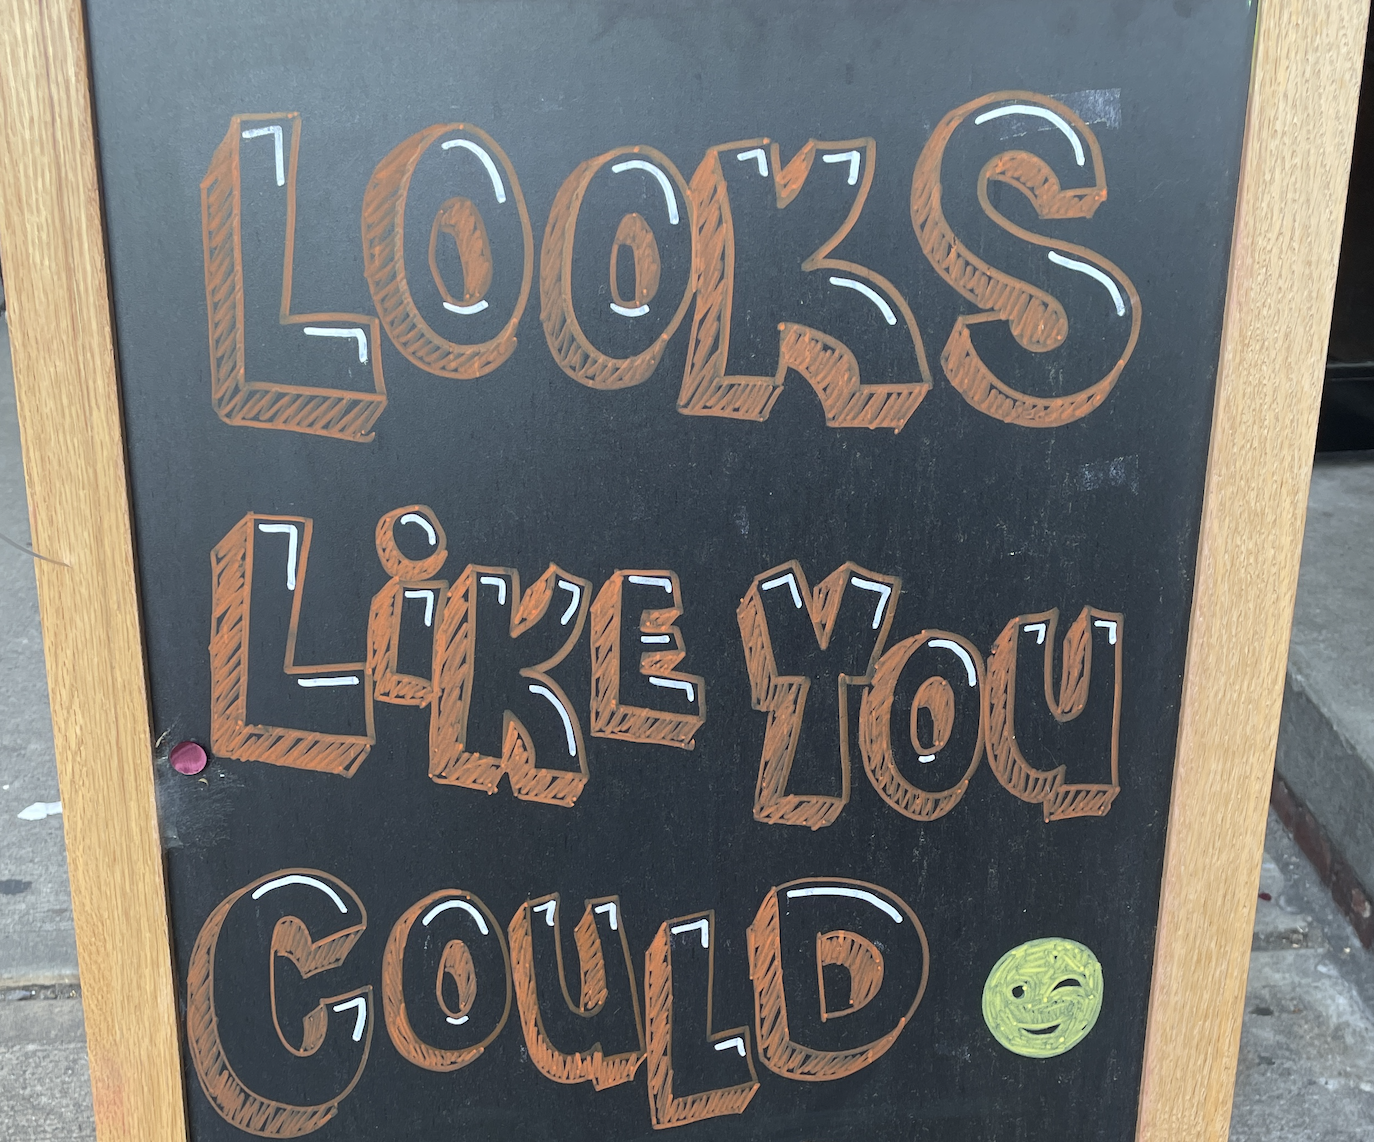 LOOKS
LiKE YOU
COULD